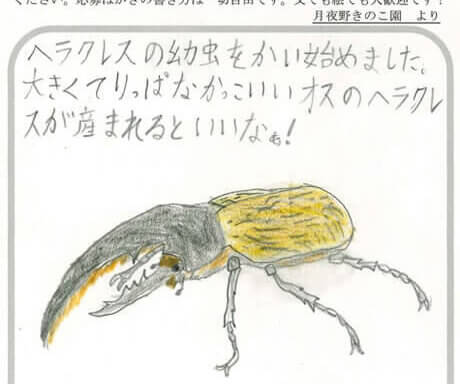 ください。応募はがきの書き方は一切自由です。文でも絵でも大歓迎です！
月夜野きのこ園　より
ヘラクレスの幼虫をかい始めました。
大きくてりっぱなかっこいいオスのヘラクレ
スが産まれるといいなぁ！